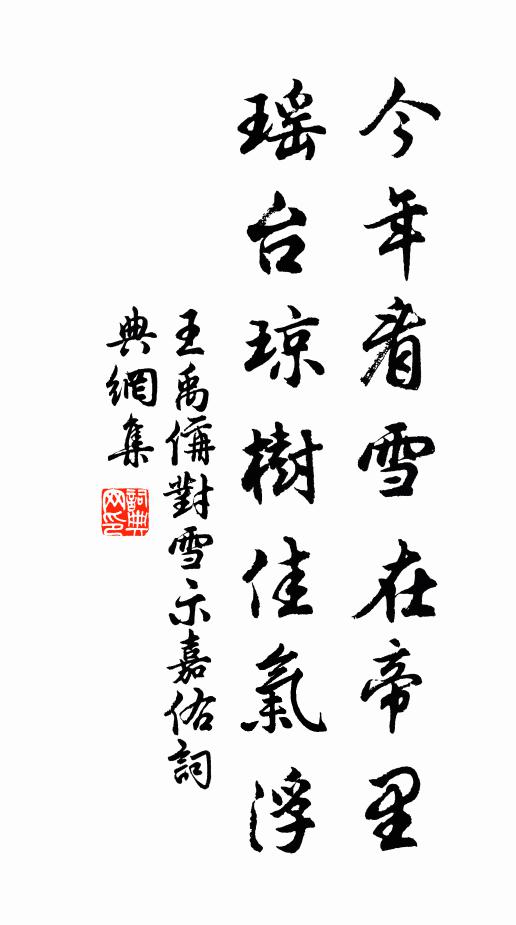 今年看雪在帝里
瑶台琼樹佳氣浮
王禹偁對雪示嘉佑詞
典網集
詞典网印